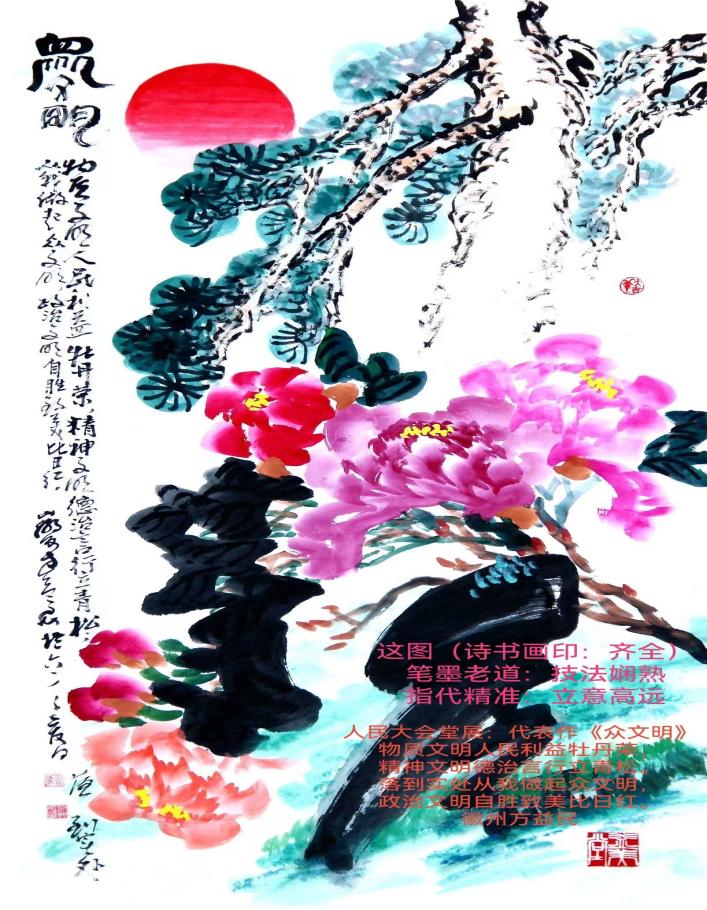 眾文明
物质文明人民利益牡丹荣精神文明德治言行立青松
我做起众文明政治文明自胜致美比日红
这图（诗书画印：齐全）
笔墨老道：技法娴熟
指代精准：立意高远
人民大会堂展：代表作《众文明》
物质文明人民利益牡丹荣，
精神文明德治言行立青松。
落到实处从我做起众文明，
政治文明自胜致美比日红。
徽州方益民